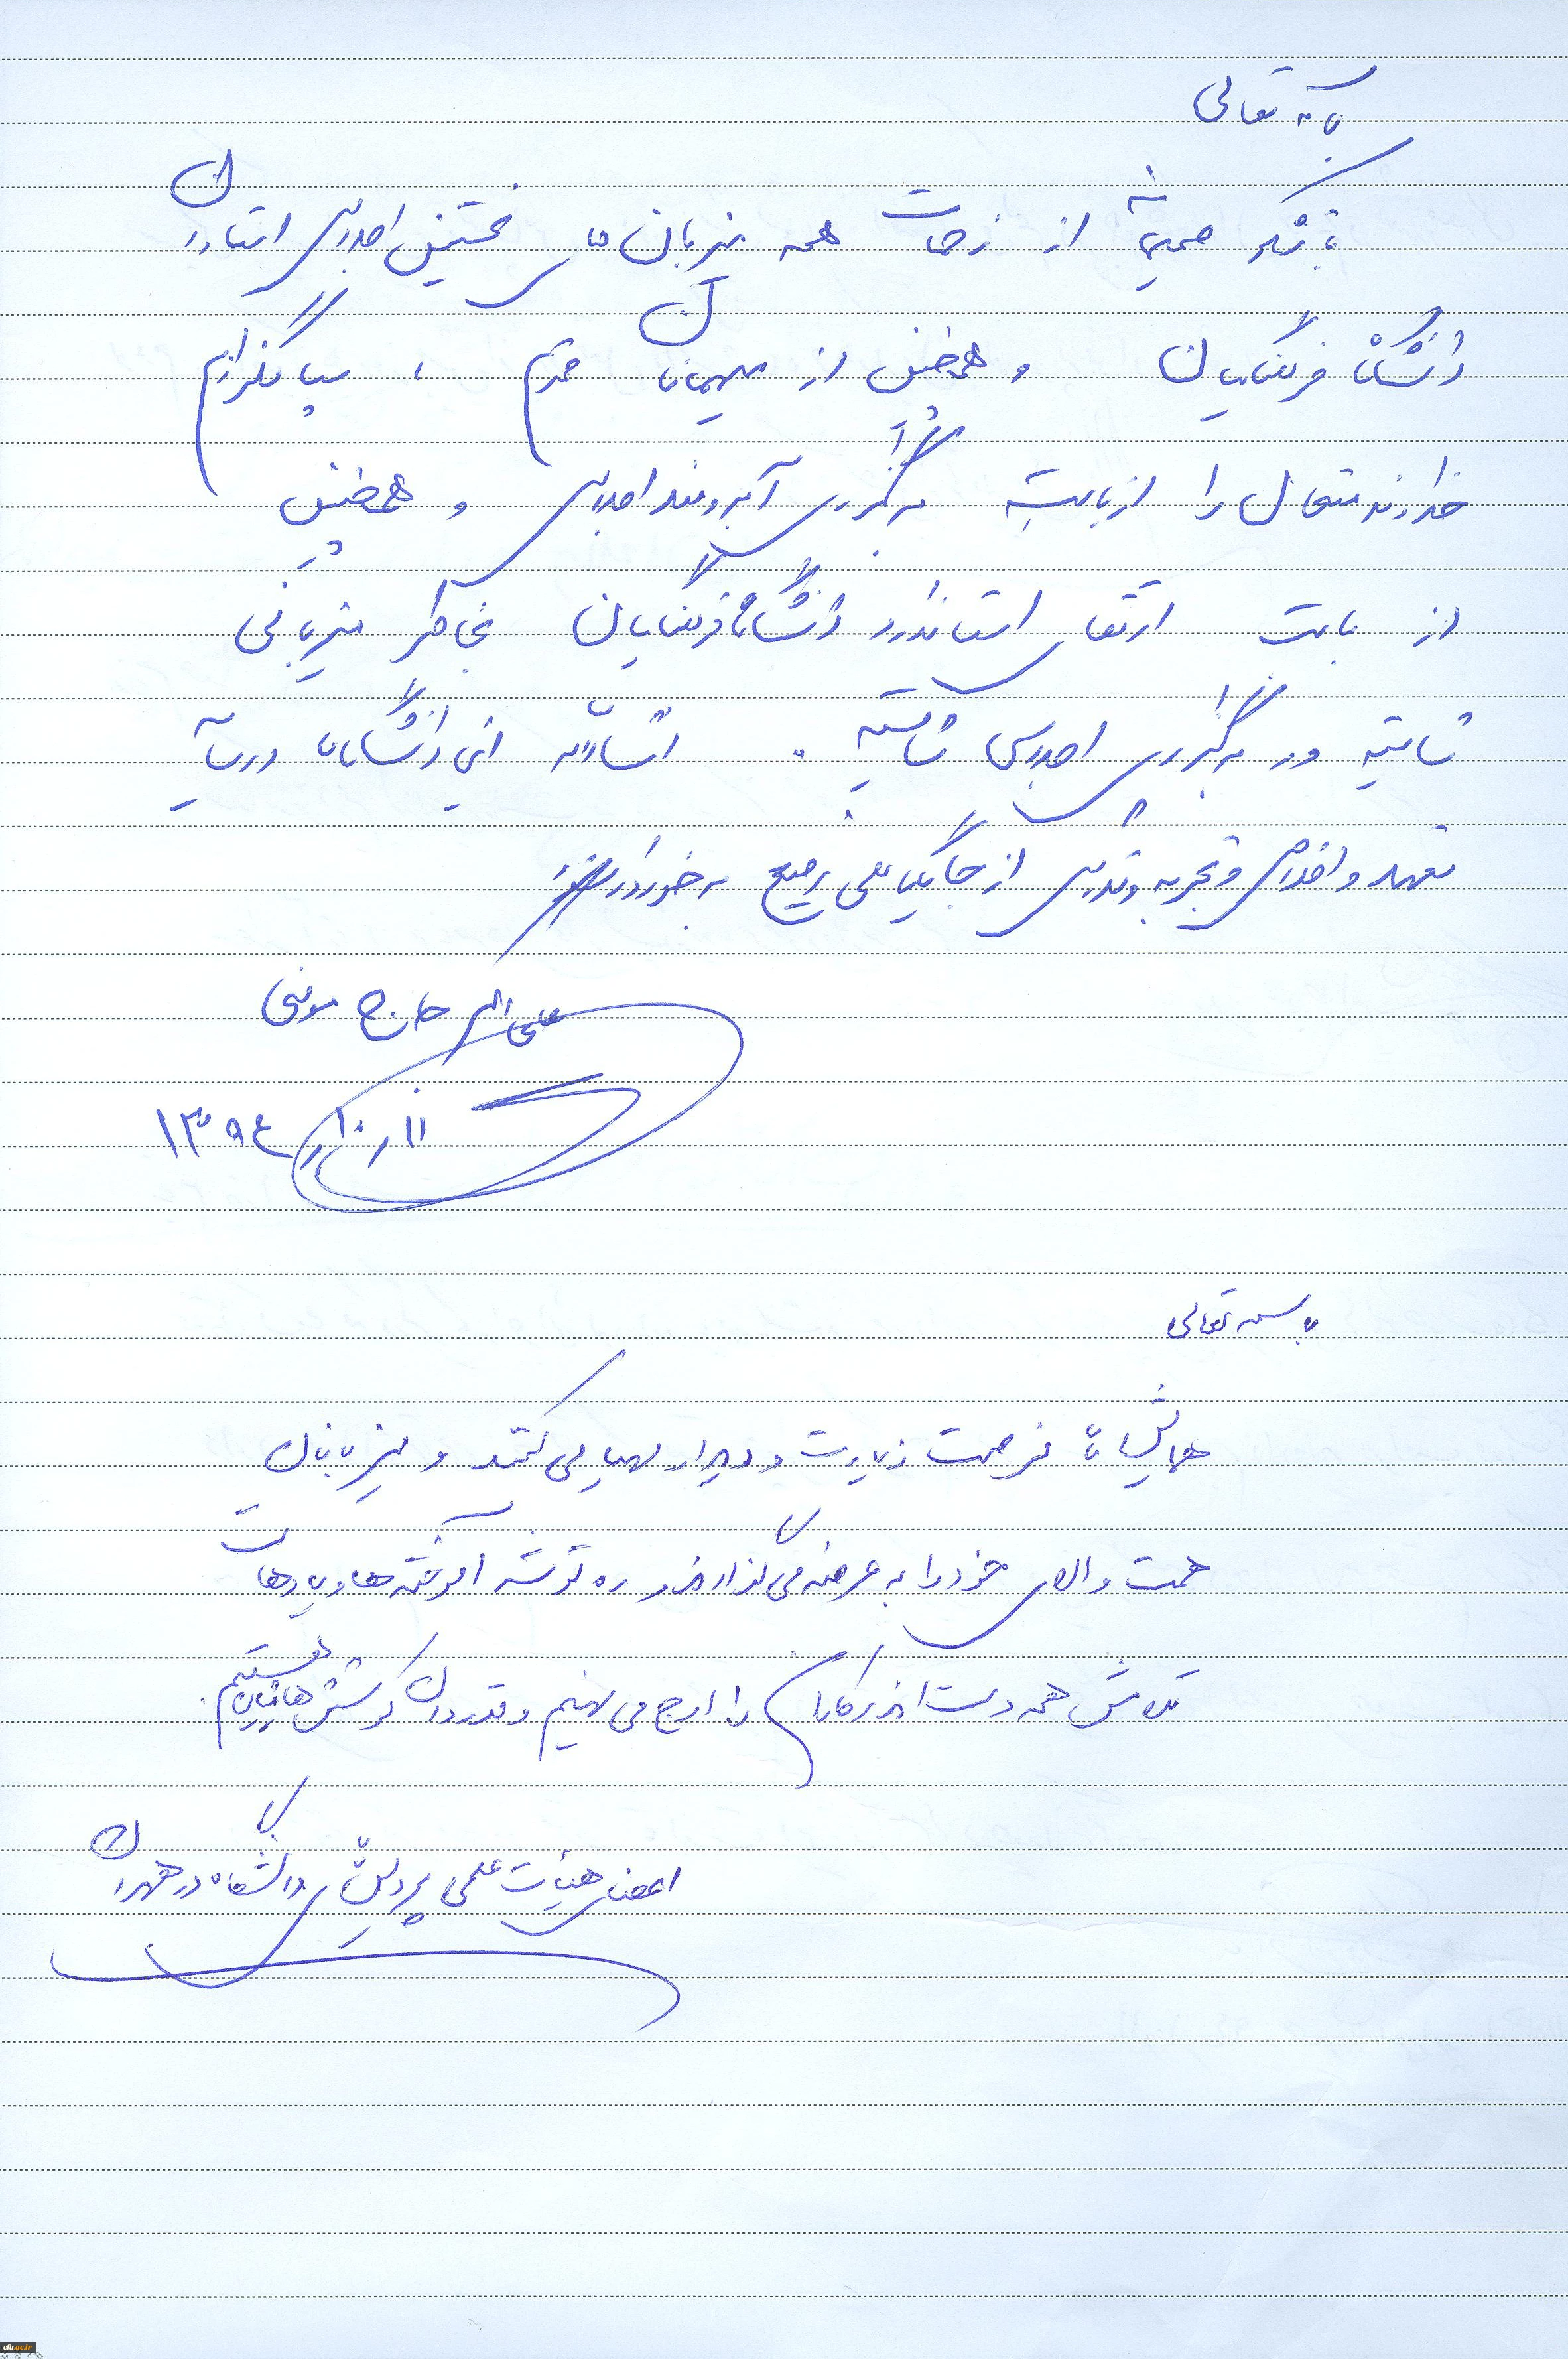 باسمه تعالی
با تشکر صمیمانه از زحمات همه میزبان های نخستین اجلاس استادان
دانشگاه فرهنگیان و همچنین از میهمانان محترم ، سپاسگزارم
خداوند متعال را از بابت برگزاری آبرومند اجلاس و همچنین
از بابت ارتقای استاندارد دانشگاه فرهنگیان بخاطر میزبانی
شایسته و برگزاری اجلاس شایسته . انشاالله این دانشگاه در سایه
تعهد و اخلاص و تجربه و تدریس از جایگاه علمی رفیع برخوردار
علی اکبر حاج مومنی
۱۳۹۴
باسمه تعالی
همایش ها فرصت زیارت و دیدار مهیا می کنند و میزبانان
همت والای خود را به عرضه می گذارند و ره توشه آموخته ها و یادهاست
تلاش همه دست اندرکاران را ارج می نهیم و قدردان کوشش هایتان هستیم.
اعضای هیأت علمی پردیس های دانشگاه در همدان
cfu.ac.ir